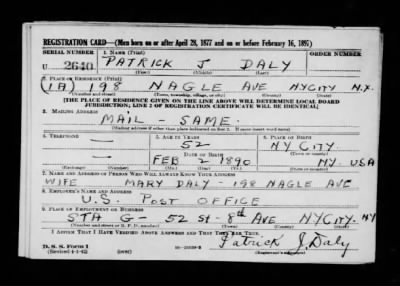 REGISTRATION CARD—(Men born on or after April 28, 1877 and on or before February 16, 1897)
SERIAL NUMBER 1. NAME (Print) ORDER NUMBER
U 2640 PATRICK J DALY
(First) (Middle) (Last)
2. PLACE OF RESIDENCE (Print)
(1A) 198 NAGLE AVE NYCITY N.Y.
(Number and street) (Town, township, village, or city) (County) (State)
[THE PLACE OF RESIDENCE GIVEN ON THE LINE ABOVE WILL DETERMINE LOCAL BOARD
JURISDICTION; LINE 2 OF REGISTRATION CERTIFICATE WILL BE IDENTICAL]
3. MAILING ADDRESS
MAIL - SAME.
(Mailing address if other than place indicated on line 2. If same insert word same)
4. TELEPHONE 5. AGE IN YEARS 6. PLACE OF BIRTH
— 52 NY CITY.
DATE OF BIRTH (Town or county)
— FEB 2 1890 NY. USA
(Exchange) (Number) (Mo.) (Day) (Yr.) (State or country)
7. NAME AND ADDRESS OF PERSON WHO WILL ALWAYS KNOW YOUR ADDRESS
WIFE MARY DALY - 198 NAGLE AVE
8. EMPLOYER'S NAME AND ADDRESS
U.S. POST OFFICE
9. PLACE OF EMPLOYMENT OR BUSINESS
STA G- 52 st - 8th AVE NYCITY. NY
(Number and street or R. F. D. number) (Town) (County) (State)
I AFFIRM THAT I HAVE VERIFIED ABOVE ANSWERS AND THAT THEY ARE TRUE.
D. S. S. Form 1
(Revised 4-1-42) Patrick J. Daly